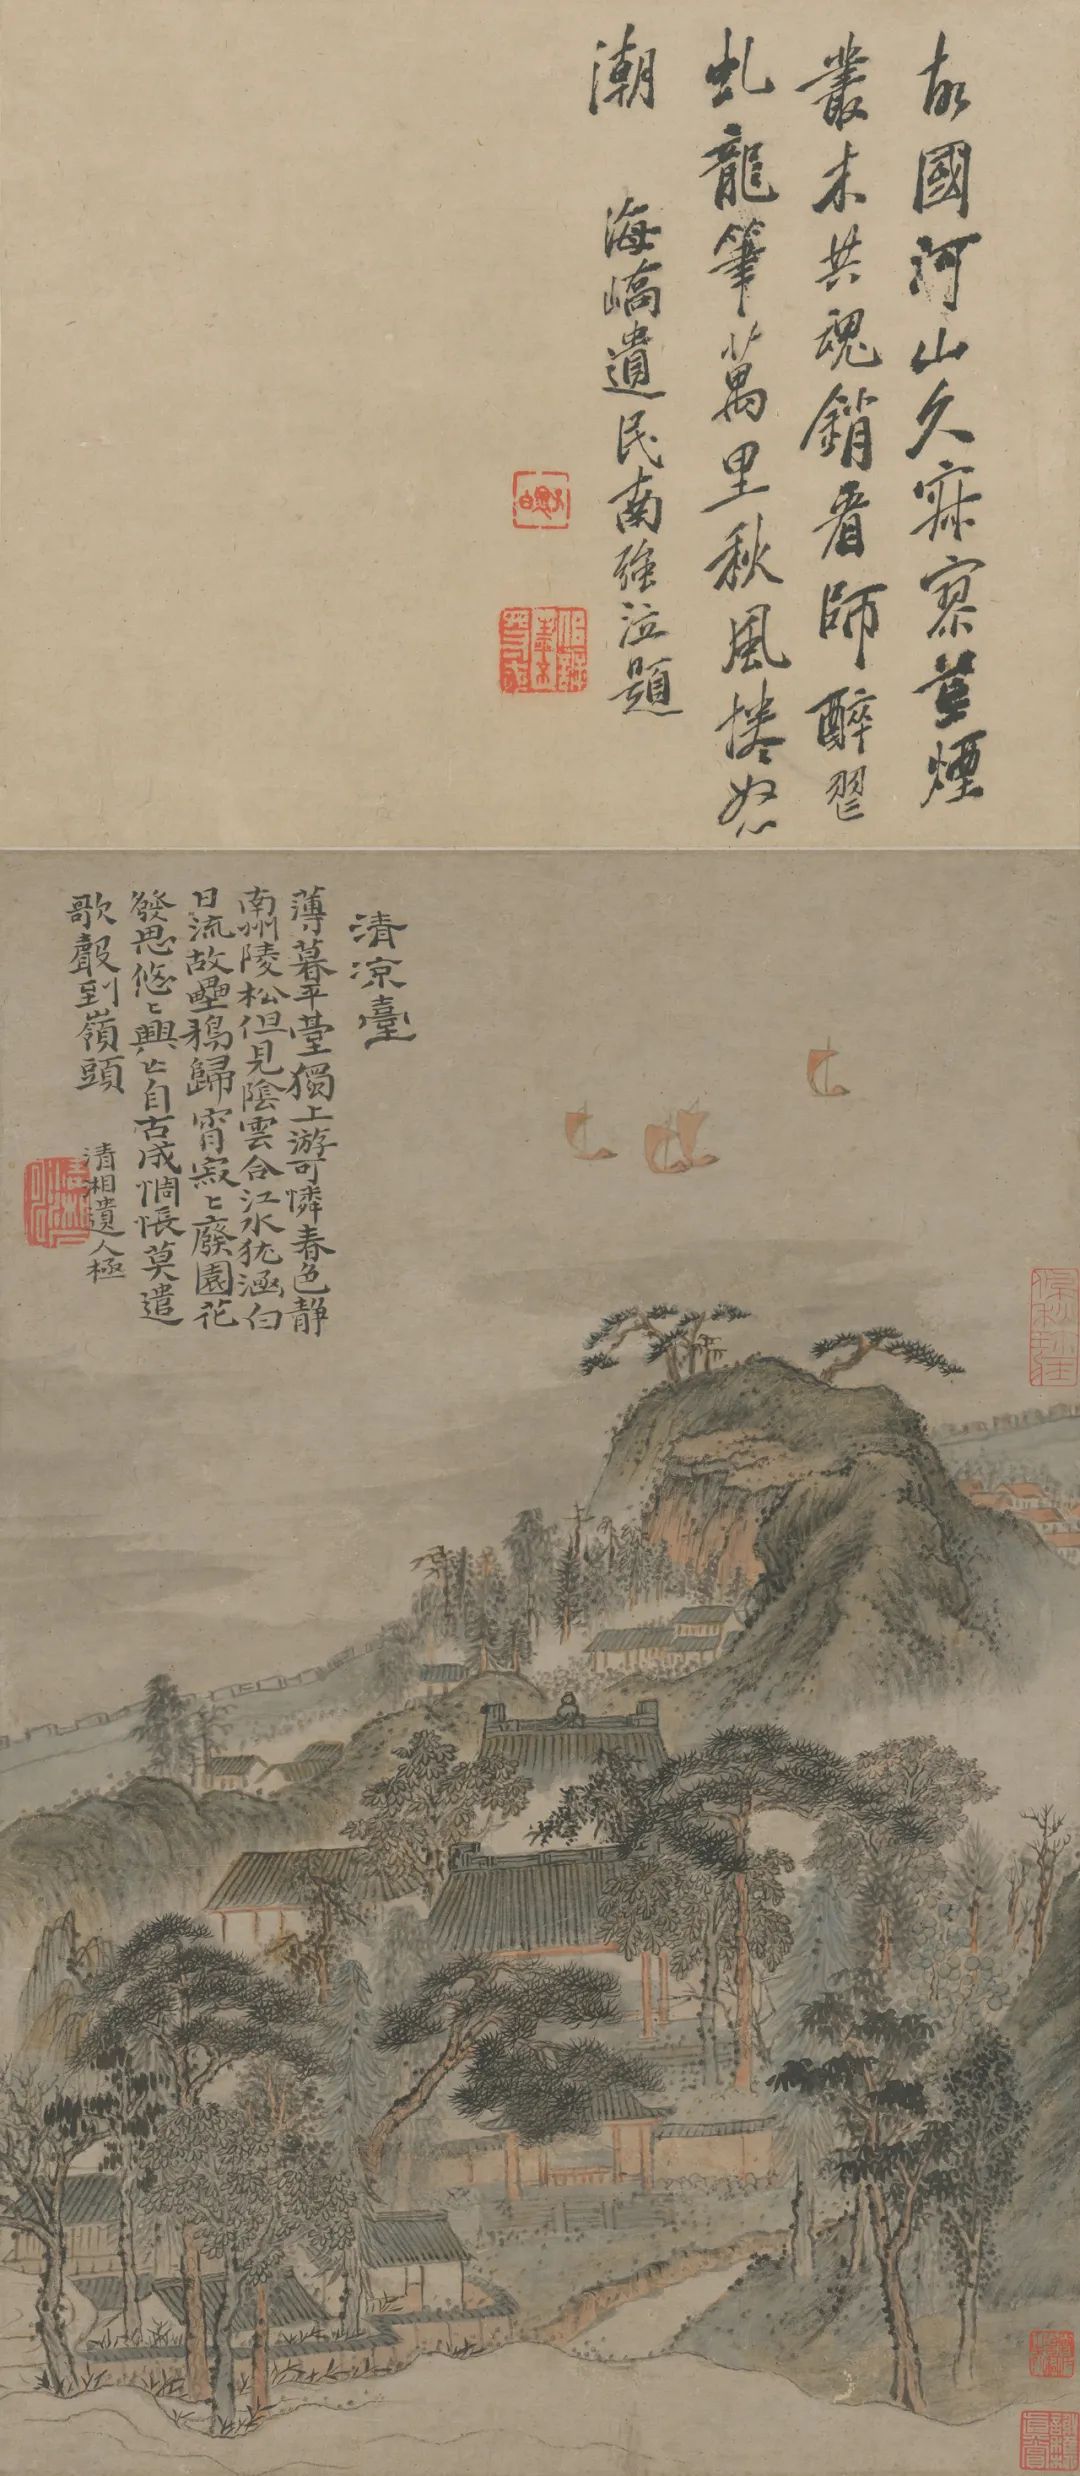 故國河山久寂寥荒煙
叢木共魂銷看師醉翣
虬龍筆萬里秋風捲怒
潮
海嶠遺民南強泣題
清凉臺
薄暮平臺獨上游可憐春色靜
南州陵松但見陰雲合江水犹涵白
日流故壘鴉歸宵寂〻廢園花
發思悠〻興亡自古成惆悵莫遣
歌聲到嶺頭
清湘遺人極